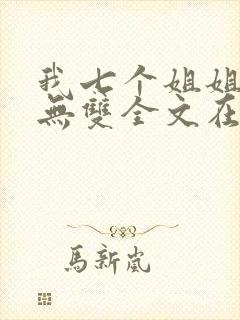 我七个姐姐
無雙全文在
馬新嵐